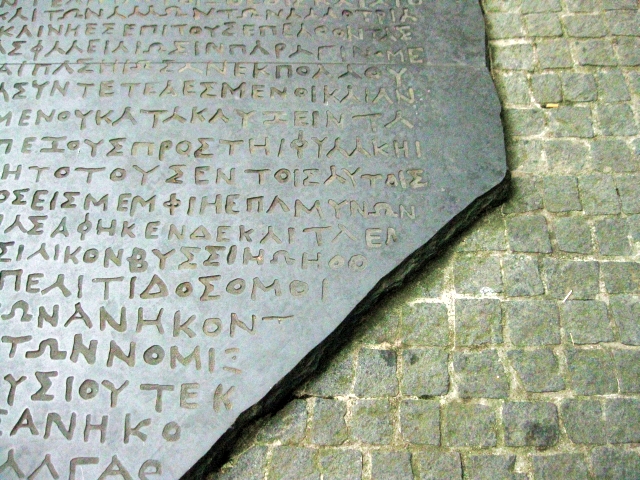 ΑΙΤΩΝΑΛΛΩΝΤΩΝΑΛΛΟΤΡΙΑ
ΚΑΙΝΗΕΣΕΠΙΤΟΥΣΕΠΕΛΘΟΝΤΑΣ
ΑΣΦΑΛΕΙΑΙΩΣΙΝΠΑΡΑΓΙΝΟΜΕ
ΑΨΙΛΗΩΣΑΝΕΚΠΟΛΛΟΥ
ΑΣΥΝΤΕΤΕΛΕΣΜΕΝΟΙΚΑΙΑΝ
ΜΕΝΟΥΚΑΤΑΚΛΥΖΕΙΝΤΑ
ΠΕΖΟΥΣΠΡΟΣΤΗΙΦΥΛΑΚΗΙ
ΗΤΟΤΟΥΣΕΝΤΟΙΣΑΥΤΟΙΣ
ΟΣΕΙΣΜΕΜΦΙΝΕΠΑΜΥΝΩΝ
ΑΣΑΦΗΚΕΝΔΕΚΑΙΤΑΕΝ
ΣΙΛΙΚΟΝΒΥΣΣΙΝΩΝΟΘΟ
ΠΕΛΙΤΙΔΟΣΟΜΟΙ
ΩΝΑΝΗΚΟΝΤ
ΤΩΝΝΟΜΙΣ
ΟΥΣΙΟΥΤΕΚ
ΕΑΝΗΚΟ
ΑΛΓΑΡ